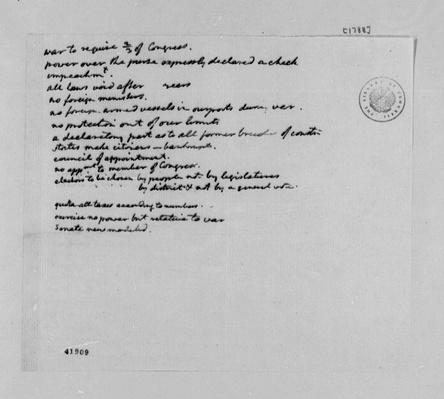 [1788]
war to require 2/3 of Congress.
power over the purse expressly declared a check
impeachmt
all laws void after years
no foreign ministers.
no foreign armed vessels in our ports during war.
no protection out of our limits
a declaratory part as to all former breaches of constn
states make citizens — bankrupt.
council of appointment.
no appmt to member of Congress.
electors to be chosen by people not by legislatures
by districts & not by a general vote.
quota all taxes according to numbers.
exercise no power but relative to war
Senate new modeled.
41909